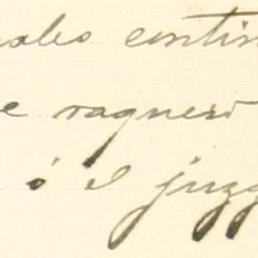 ales contin
e vaquero
ó el juzg